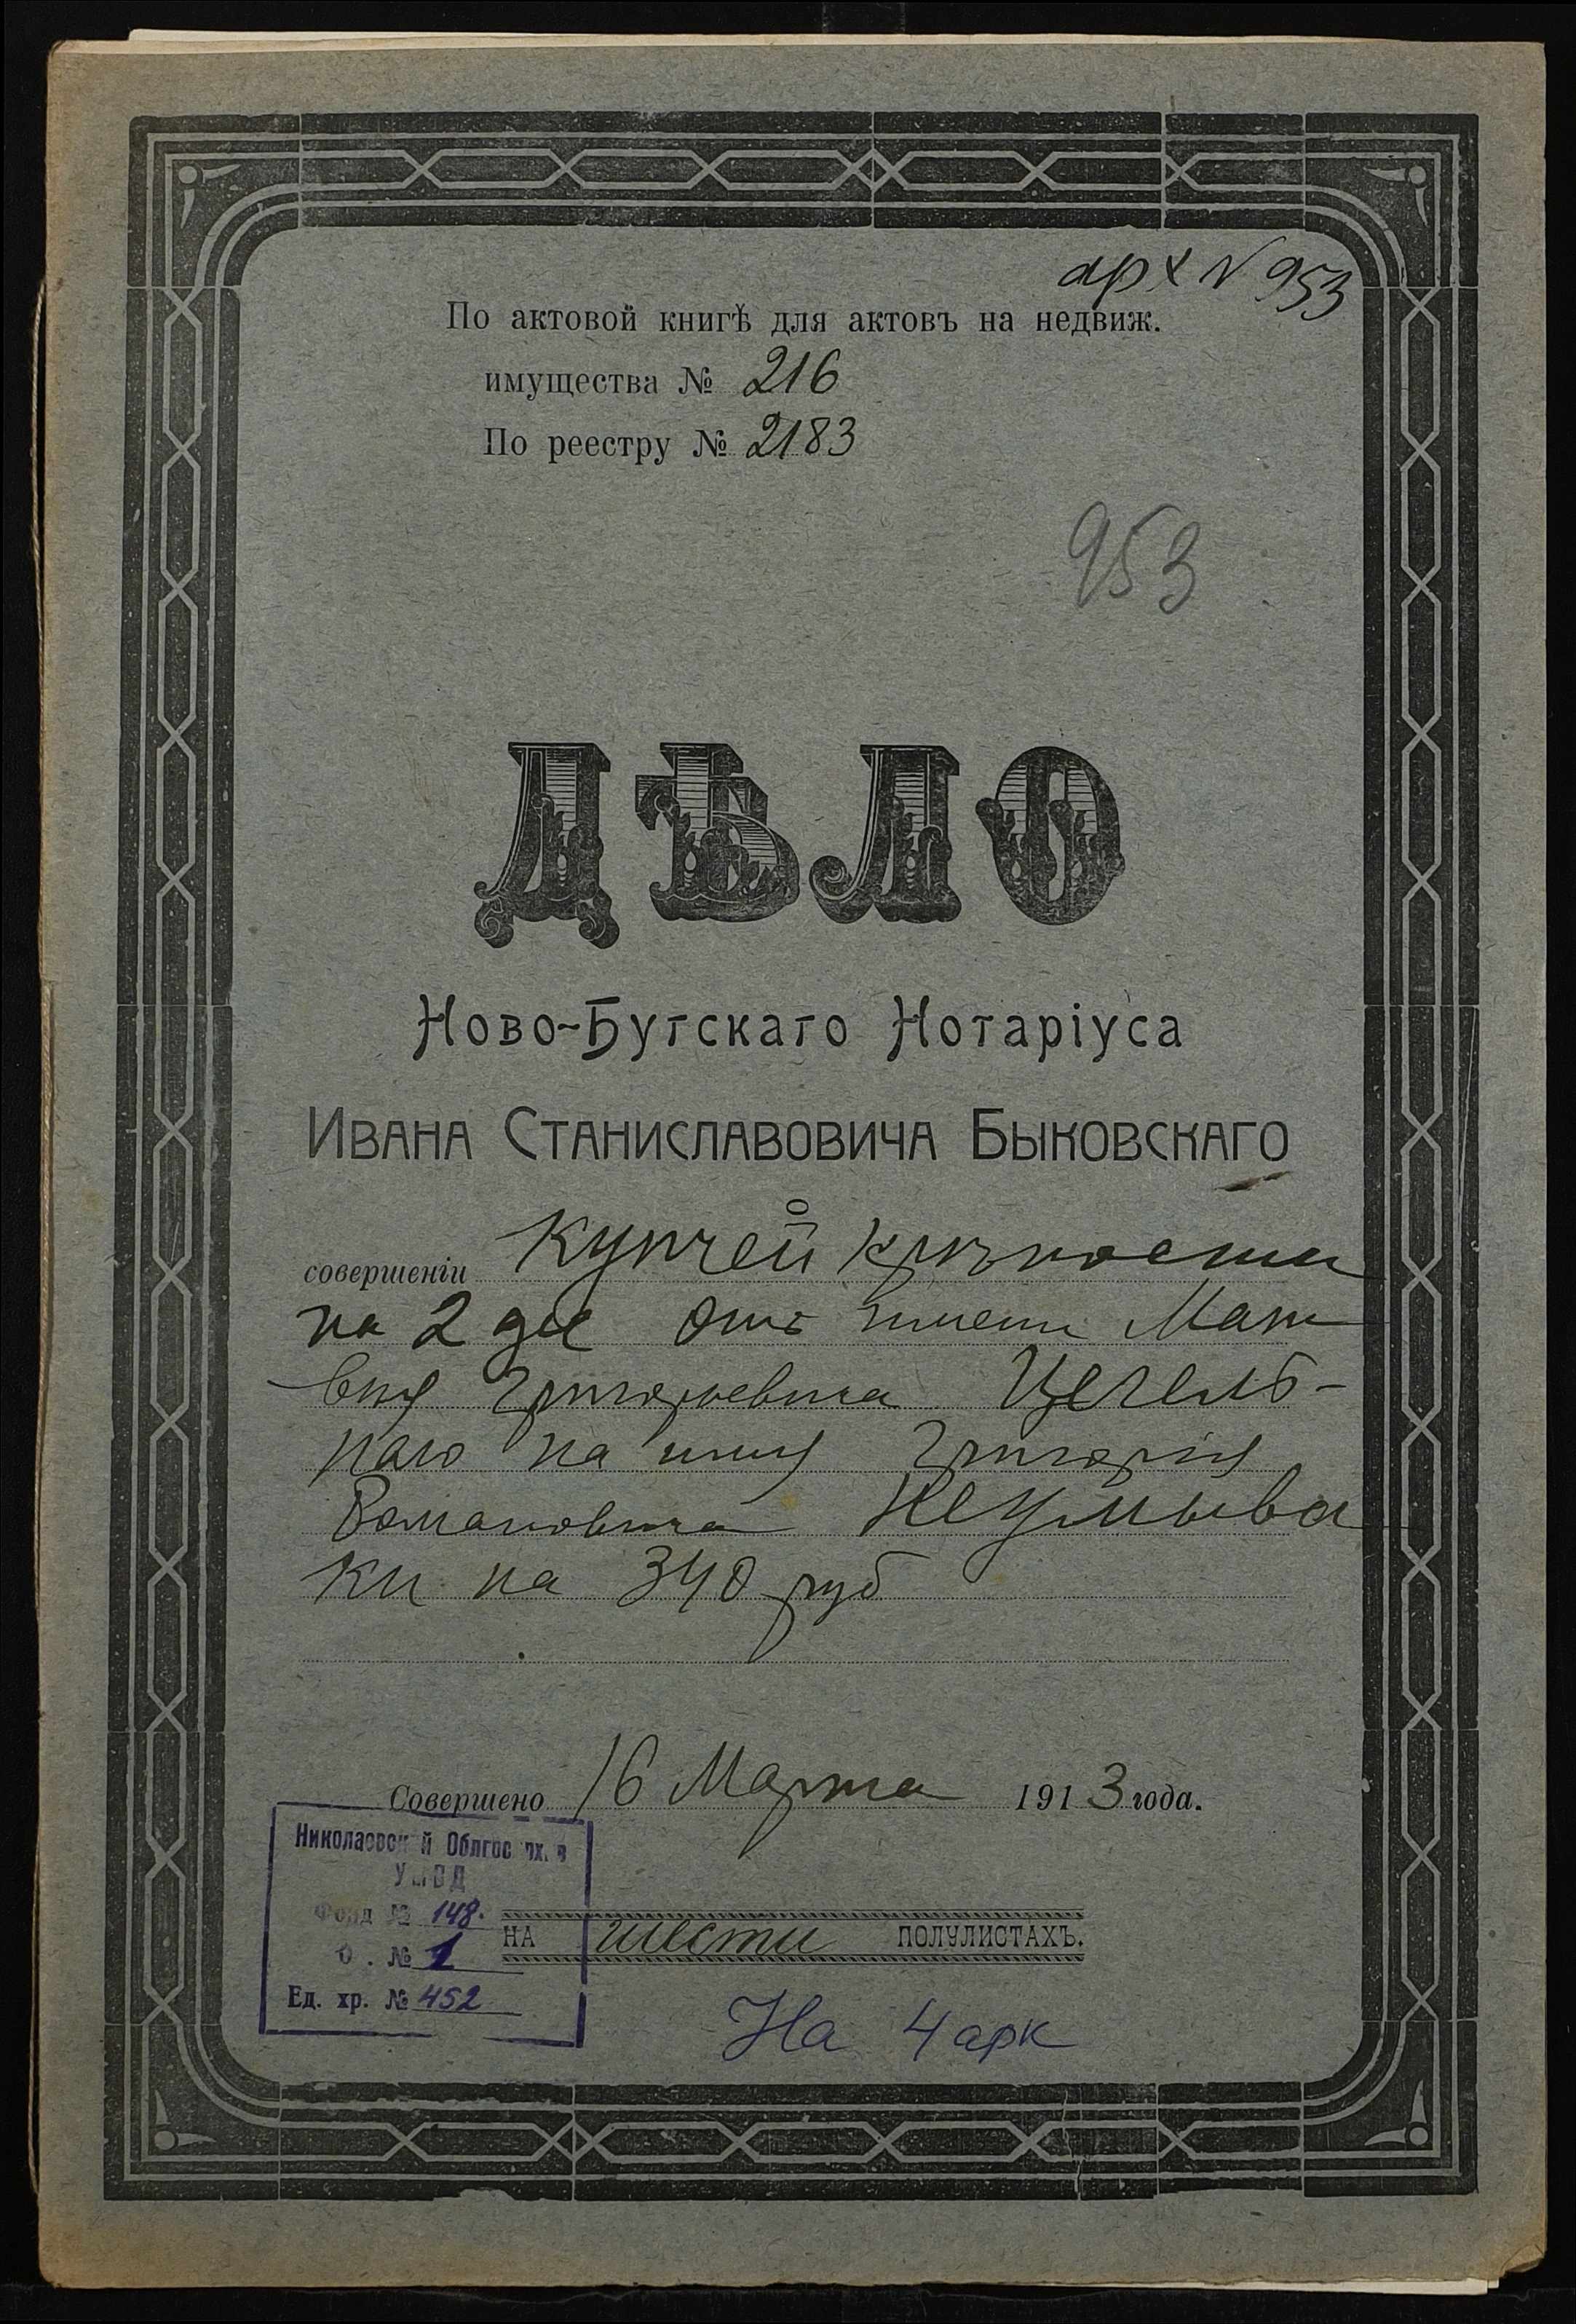 арх № 953
По актовой книгѣ для актовъ на недвиж.
имущества № 216
По реестру № 2183
953
ДѢЛО
Ново-Бугскаго Нотаріуса
Ивана Станиславовича Быковскаго
о
совершеніи купчей крѣпости
на 2 дес отъ имени Мат
вѣя Григорьевича Цегель-
наго на имя Григорія
Романовича Неумыва
ки на 340 руб
Совершено 16 Марта 1913 года.
Николаевский Облгосархив
УМВД
Фонд № 148.
О . № 1
Ед. хр. № 452
НА шести ПОЛУЛИСТАХЪ.
На 4 арк